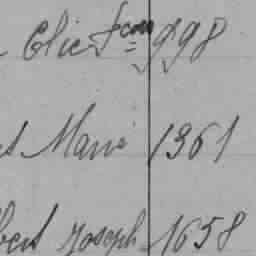 Elie Fcois 998
Marie 1361
bert Joseph 1658